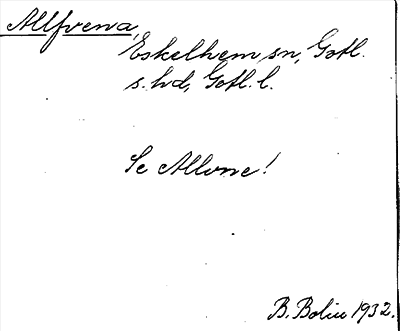 Allfvena,
Eskelhem sn, Gotl.
s. hd, Gotl. l.
Se Allvne!
B. Bolin 1932.